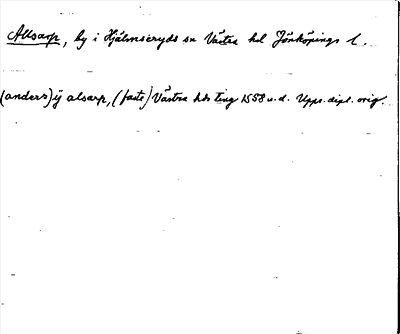 Allsarp, by i Hjälmseryds sn Västra hd Jönköpings l.
(anders) ij alsarp, (faste) Västra hds ting 1558 u.d. Upps. dipl. orig.